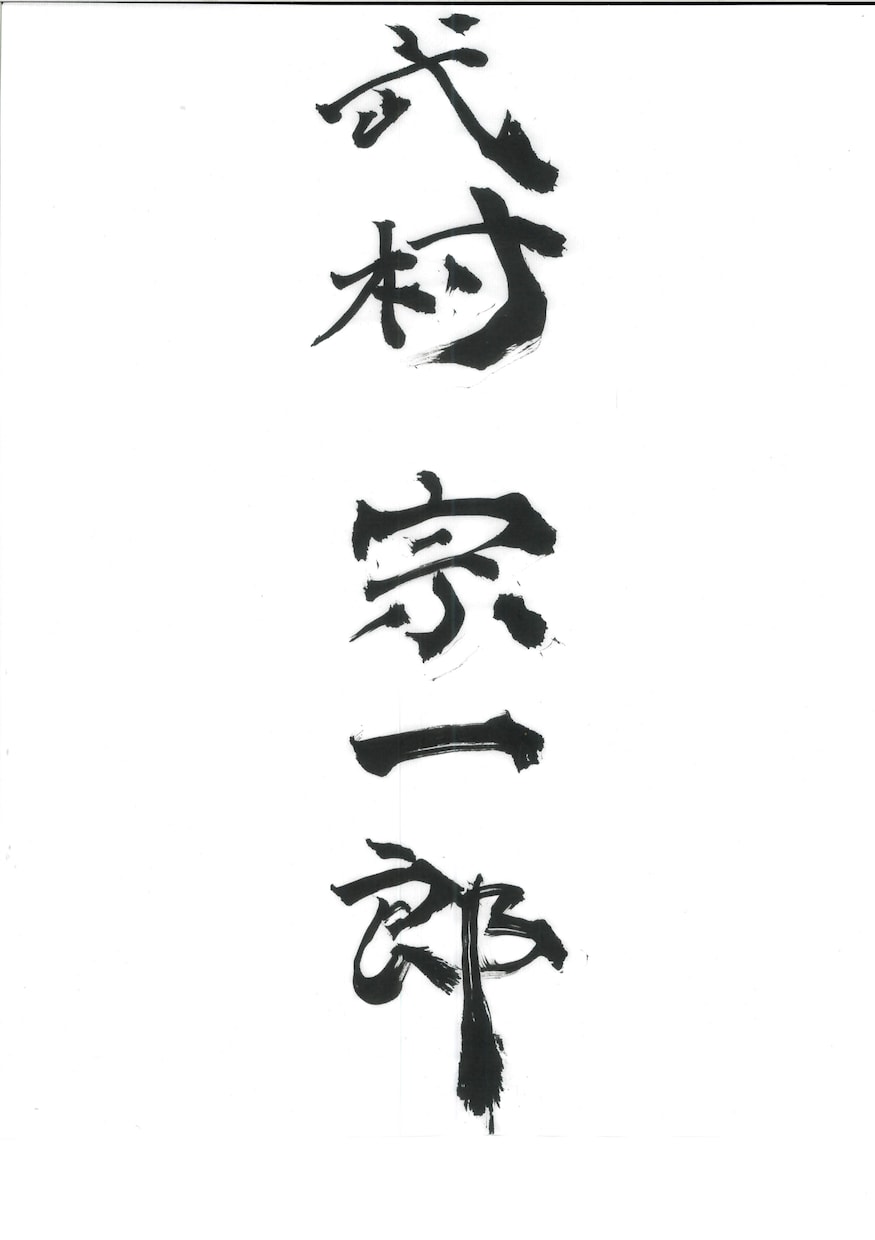 武村 宗一郎